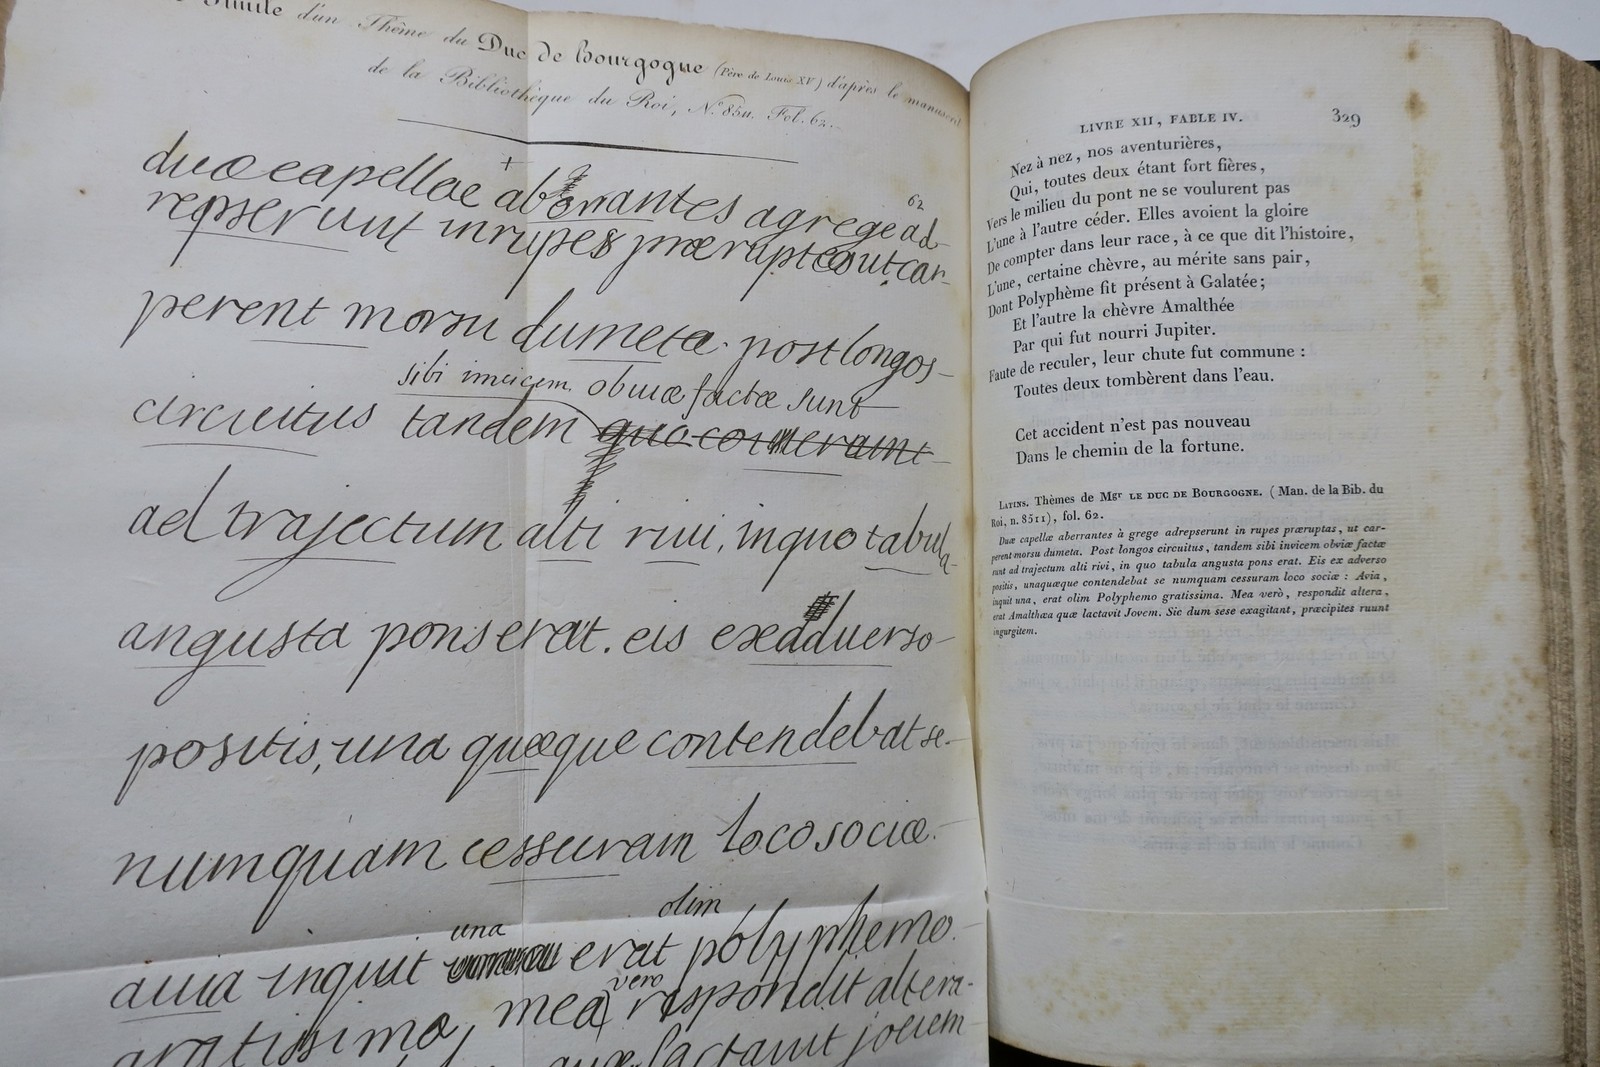 Simile d'un Thême du Duc de Bourgogne (Père de Louis XV) d'après le manuscrit
de la Bibliothèque du Roi, N.º 8511. Fol. 62.
62
duæ capellæ aberrantes agrege ad-
repserunt in rupes præruptas ut car-
perent morsu dumeta. post longos-
sibi invicem obuiæ factæ sunt
circuitus tandem
ad trajectum alti riui, inquo tabula
angusta pons erat. eis exaduerso-
positis, una quæque contendebat se-
numquam cessuram loco sociæ.
una olim
auia inquit erat polyphemo.
vero
gratissima, mea respondit altera-
quæ lactauit jouem
LIVRE XII, FABLE IV. 329
Nez à nez, nos aventurières,
Qui, toutes deux étant fort fières,
Vers le milieu du pont ne se voulurent pas
L'une à l'autre céder. Elles avoient la gloire
De compter dans leur race, à ce que dit l'histoire,
L'une, certaine chèvre, au mérite sans pair,
Dont Polyphème fit présent à Galatée;
Et l'autre la chèvre Amalthée
Par qui fut nourri Jupiter.
Faute de reculer, leur chute fut commune :
Toutes deux tombèrent dans l'eau.
Cet accident n'est pas nouveau
Dans le chemin de la fortune.
LATINS. Thèmes de Mgr LE DUC DE BOURGOGNE. (Man. de la Bib. du
Roi, n. 8511), fol. 62.
Duæ capellæ aberrantes à grege adrepserunt in rupes præruptas, ut car-
perent morsu dumeta. Post longos circuitus, tandem sibi invicem obviæ factæ
sunt ad trajectum alti rivi, in quo tabula angusta pons erat. Eis ex adverso
positis, unaquæque contendebat se numquam cessuram loco sociæ : Avia,
inquit una, erat olim Polyphemo gratissima. Mea verò, respondit altera,
erat Amalthæa quæ lactavit Jovem. Sic dum sese exagitant, præcipites ruunt
ingurgitem.